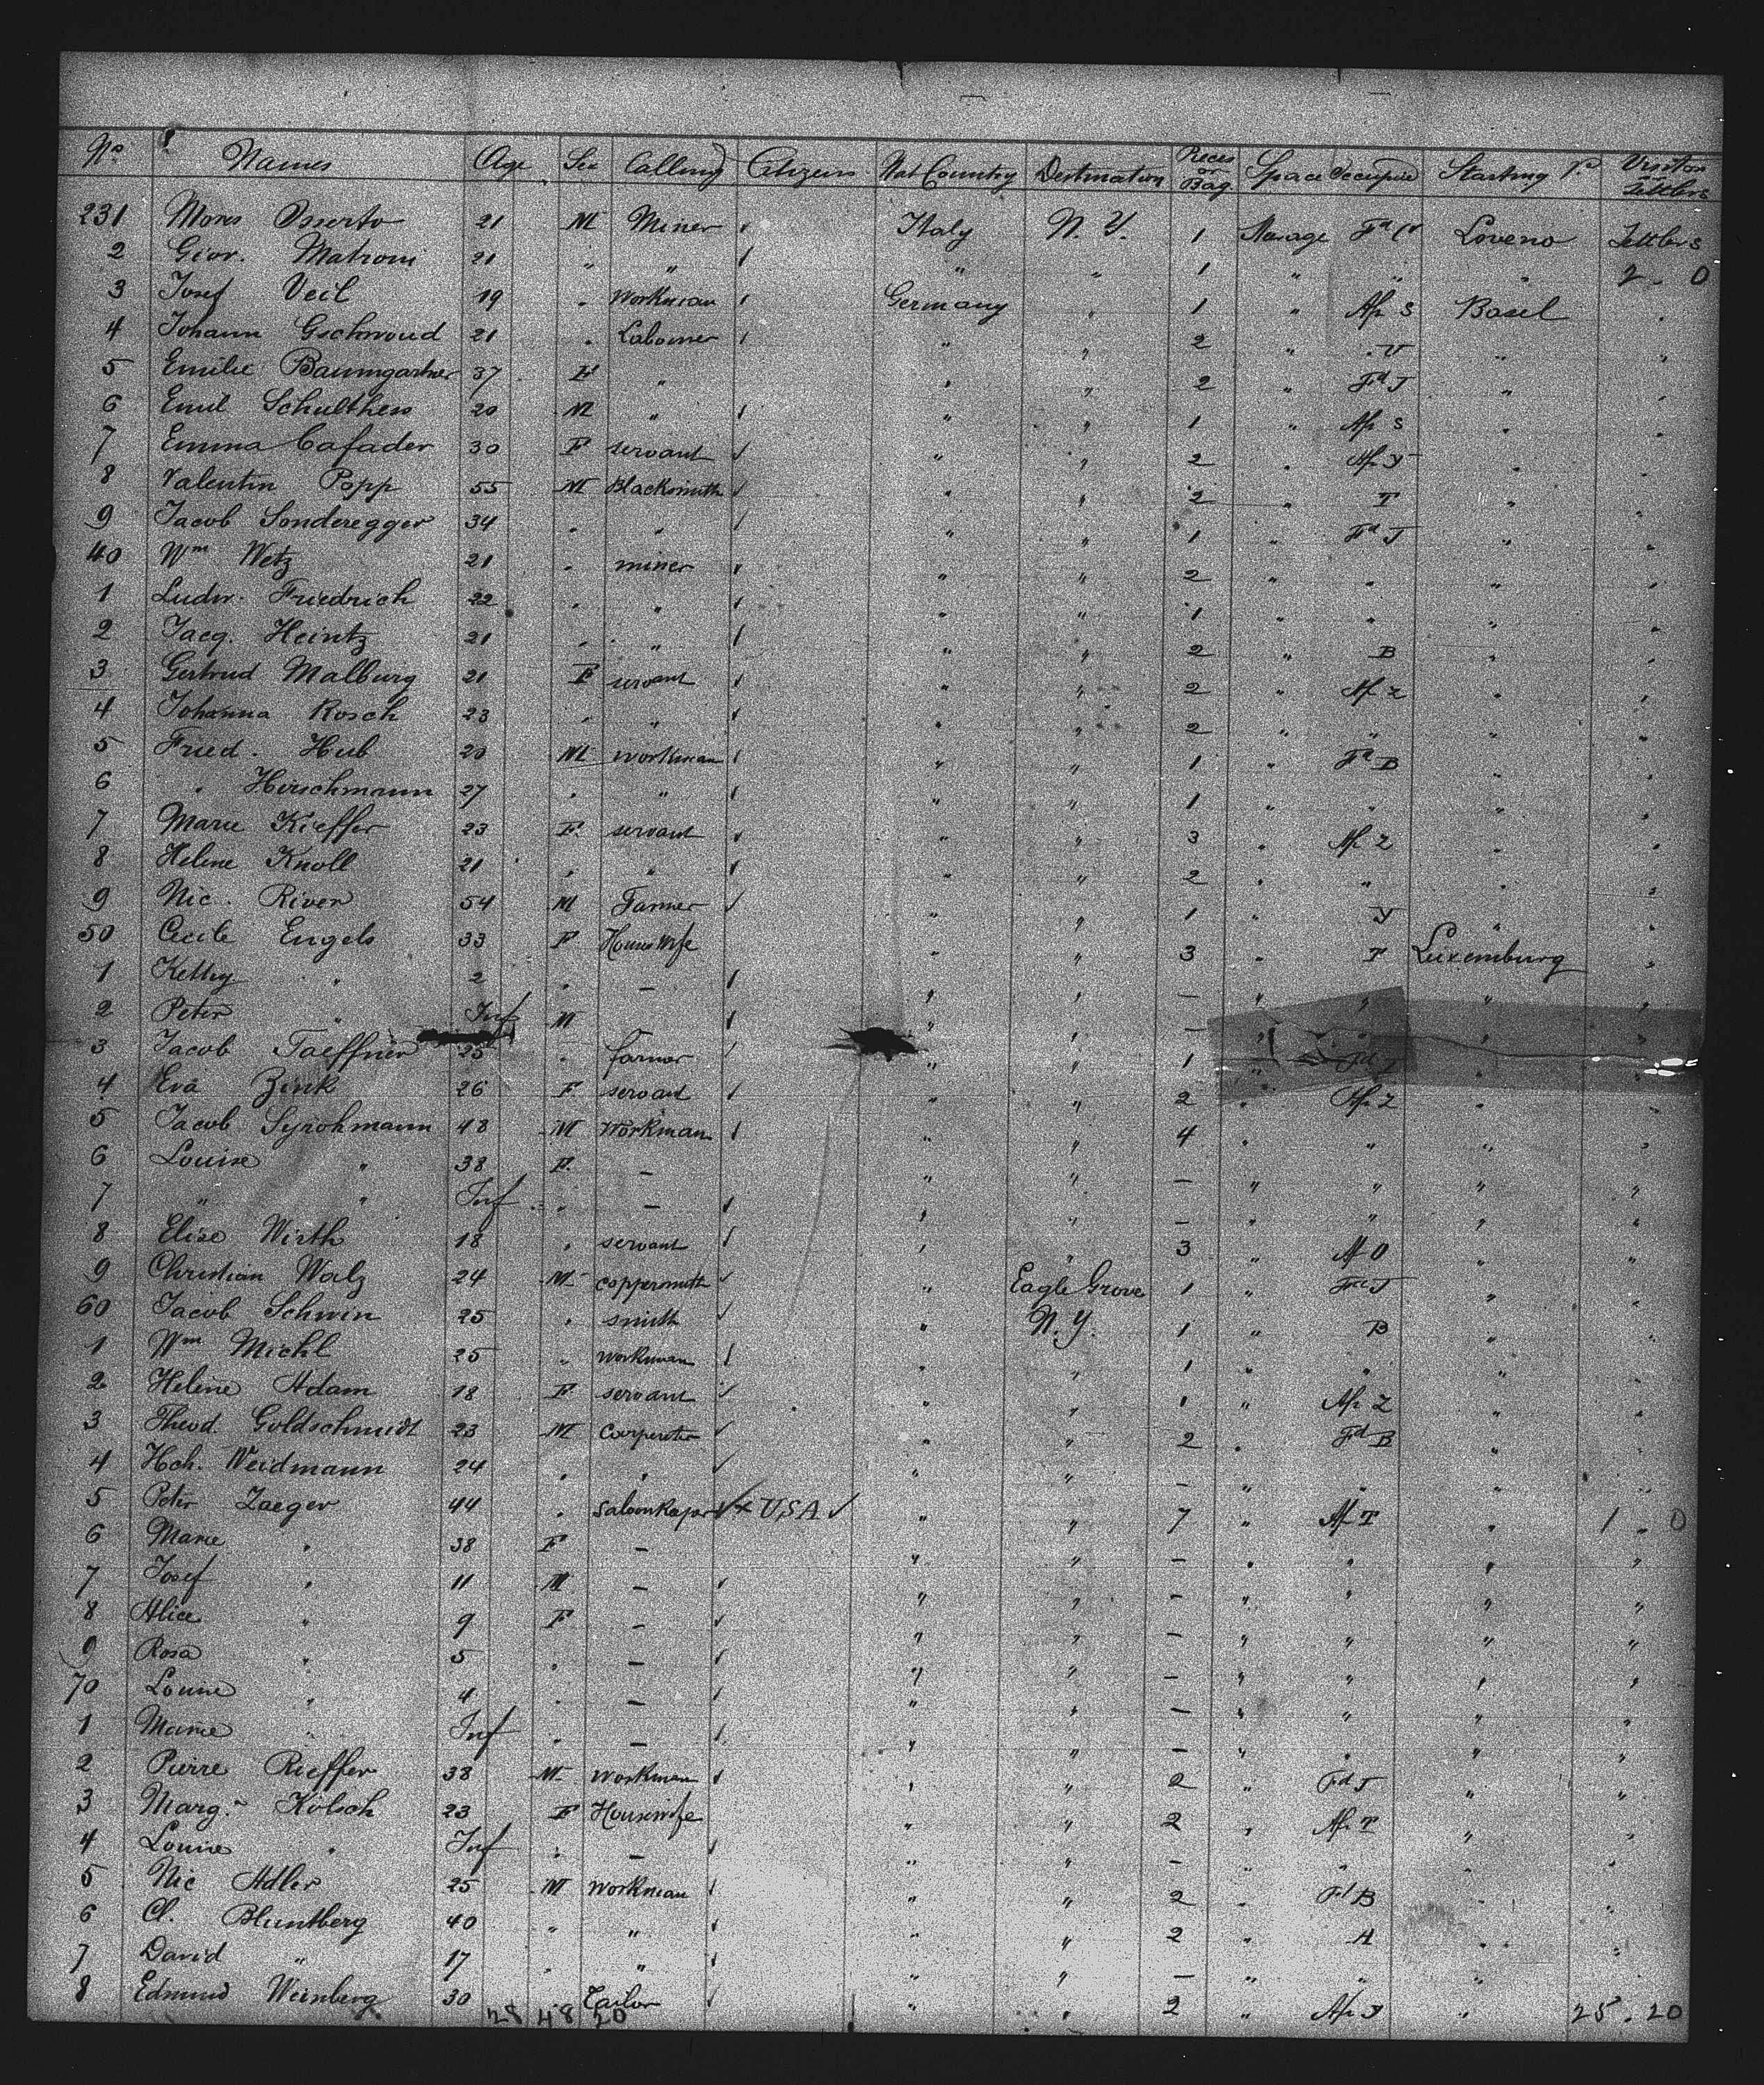 No. Names Age Sex Calling Citizen Nat Country Destination Pieces or Bag. Space Occupied Starting P. Visitor Settlers
231 Mores Osserto 21 M Miner Italy N. Y. 1 Loveno Settlers
2 Giov. Matroni 21 " " " " 1 " " " 2 - 0
3 Josef Veil 19 " Workman Germany " 1 " Af. S Basel "
4 Johann Gschwoud 21 " Labourer " " 2 " " " "
5 Emilie Baumgartner 37 F " " " 2 " Fd J " "
6 Emil Schulthess 20 M " " " 1 " Af. S " "
7 Emma Cafader 30 F servant " " 2 " " "
8 Valentin Popp 55 M Blacksmith " " 2 " T " "
9 Jacob Sonderegger 34 " " " " 1 " Fd J " "
40 Wm Wetz 21 " miner " " 2 " " " "
1 Ludw. Friedrich 22 " " " " 1 " " " "
2 Jacq. Heintz 21 " " " " 2 " B " "
3 Gertrud Malburg 21 F servant " " 2 " Af. Z " "
4 Johanna Rosch 23 " " " " 2 " " " "
5 Fried. Hub 20 M workman " " 1 " Fd B " "
6 " Hirschmann 27 " " " " 1 " " " "
7 Marie Kieffer 23 F. servant " " 3 " Af. Z " "
8 Helene Knoll 21 " " " " 2 " " " "
9 Nic. River 54 M Farmer " " 1 " " "
50 Cecile Engels 33 F House Wife " " 3 " T Luxemburg "
1 Kethy " 2 " - " " - " " " "
2 Peter " Inf M " " - " " " "
3 Jacob Taeffner 25 " farmer " " 1 " " "
4 Eva Zink 26 F. servant " " 2 " Af. Z " "
5 Jacob Syrohmann 48 M Workman " " 4 " " " "
6 Louise " 38 F. - " " - " " " "
7 " " Inf " - " " - " " " "
8 Elise Wirth 18 " servant " " 3 " Af O " "
9 Christian Walz 24 M coppersmith " Eagle Grove 1 " Fd J " "
60 Jacob Schwin 25 " smith " N. Y. 1 " B " "
1 Wm Michl 25 " workman " " 1 " " " "
2 Helene Adam 18 F servant " " 1 " Af. Z " "
3 Theod. Goldschmidt 23 M Carpenter " " 2 " Fd B " "
4 Hch. Weidmann 24 " " " " - " " " "
5 Peter Zaeger 44 " saloonkeper x USA " " 7 " Af T " 1 " 0
6 Marie " 38 F - " " - " " " "
7 Josef " 11 M - " " - " " " "
8 Alice " 9 F - " " - " " " "
9 Rosa " 5 " - " " - " " " "
70 Louise " 4 " - " " - " " " "
1 Marie " Inf " - " " - " " " "
2 Pierre Rieffer 38 M workman " " 2 " Fd J " "
3 Marg. Kölsch 23 F Housewife " " 2 " Af. T " "
4 Louise " Inf " - " " - " " " "
5 Nic Adler 25 M workman " " 2 " Fd B " "
6 Cl. Bluntberg 40 " " " " 2 " A " "
7 David " 17 " " " " - " " " "
8 Edmund Weinberg 30 " Tailor " " 2 " " 25 . 20
28 48 20